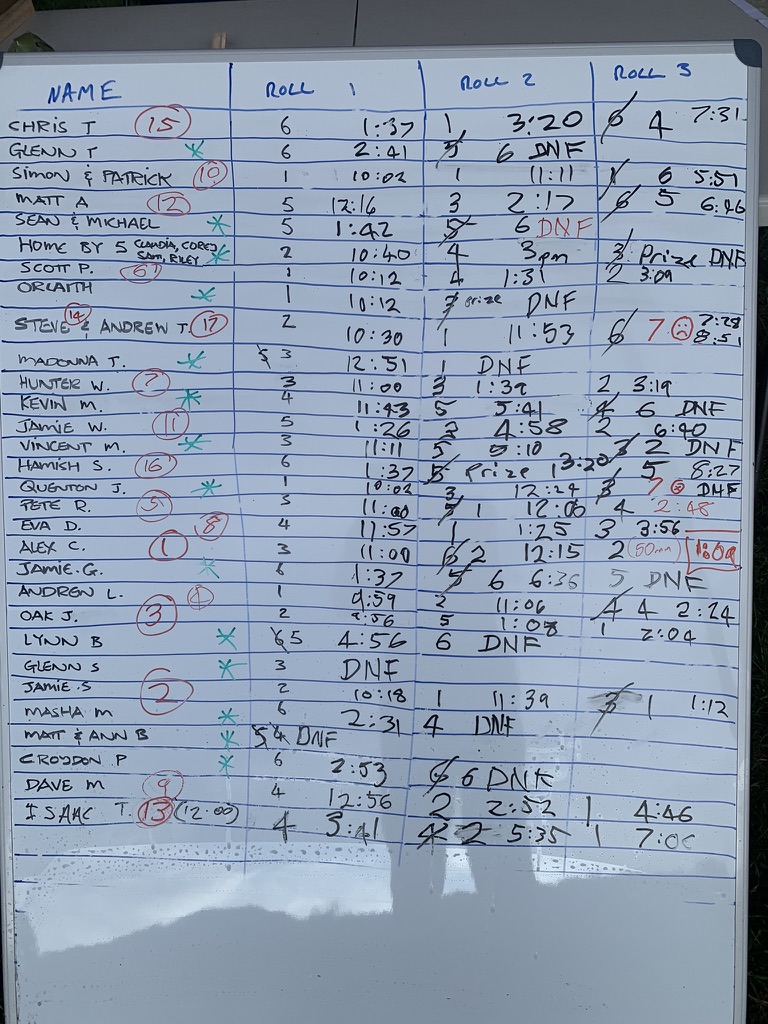 NAME ROLL 1 ROLL 2 ROLL 3
CHRIS T 15 6 1:37 1 3:20 6 4 7:31
GLENN T * 6 2:41 5 6 DNF
SIMON & PATRICK 10 1 10:02 1 11:11 1 6 5:51
MATT A 12 5 12:16 3 2:17 6 5 6:46
SEAN & MICHAEL * 5 1:42 5 6 DNF
HOME BY 5 CLAUDIA, COREY SAM, RILEY * 2 10:40 4 3pm 3 Prize DNF
SCOTT P. 6 1 10:12 4 1:31 2 3:09
ORLAITH * 1 10:12 3 prize DNF
STEVE 14 & ANDREW T. 17 2 10:30 1 11:53 6 7 ☹ 7:28 8:51
MADONNA T. * 5 3 12:51 1 DNF
HUNTER W. 7 3 11:00 3 1:39 2 3:19
KEVIN M. * 4 11:43 5 5:41 4 6 DNF
JAMIE W. 11 5 1:26 3 4:58 2 6:40
VINCENT M. * 3 11:11 5 :10 3 2 DNF
HAMISH S. 16 6 1:37 5 Prize 1 3:20 5 8:27
QUENTON J. * 1 10:02 3 12:24 3 7 ☹ DNF
PETE R. 5 3 11:00 5 1 12:06 4 2:48
EVA D. 8 4 11:57 1 1:25 3 3:56
ALEX C. 1 3 11:00 6 2 12:15 2 (50min)
JAMIE.G. * 6 1:37 5 6 6:36 5 DNF
ANDREW L. 4 1 9:59 2 11:06 4 4 2:24
OAK J. 3 2 9:56 5 1:08 1 2:04
LYNN B * 6 5 4:56 6 DNF
GLENN S * 3 DNF
JAMIE.S 2 2 10:18 1 11:39 3 1 1:12
MASHA M * 6 2:31 4 DNF
MATT & ANN B * 5 4 DNF
CROYDON P * 6 2:53 6 6 DNF
DAVE M 9 4 12:56 2 2:52 1 4:46
ISAAC T. 13 (12:00) 4 3:41 4 2 5:35 1